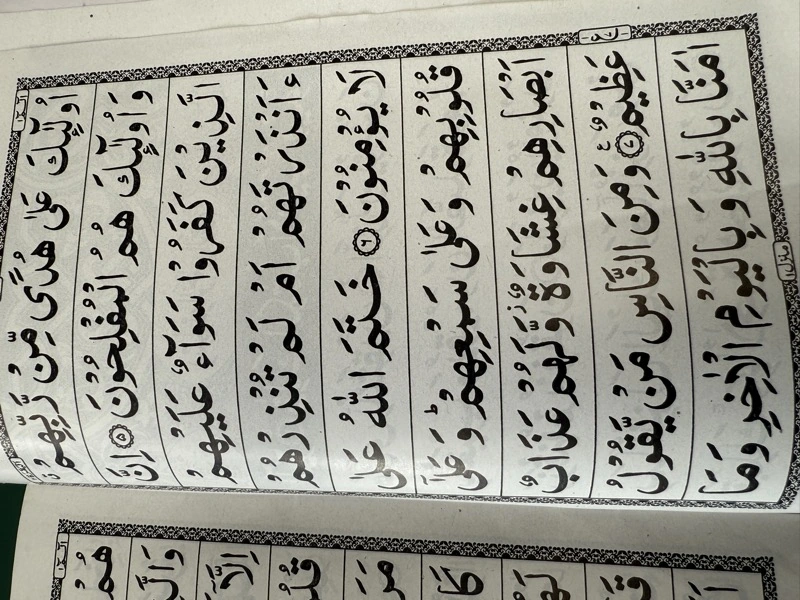 الٓمّٓ ١
اُولٰٓئِكَ عَلٰى هُدًى مِّنْ رَّبِّهِمْ ۙ
وَ اُولٰٓئِكَ هُمُ الْمُفْلِحُوْنَ ۝٥ اِنَّ
الَّذِيْنَ كَفَرُوْا سَوَآءٌ عَلَيْهِمْ
ءَاَنْذَرْتَهُمْ اَمْ لَمْ تُنْذِرْهُمْ
لَا يُؤْمِنُوْنَ ۝٦ خَتَمَ اللّٰهُ عَلٰى
قُلُوْبِهِمْ وَ عَلٰى سَمْعِهِمْ ؕ وَ عَلٰٓى
اَبْصَارِهِمْ غِشَاوَةٌ ؗ وَّ لَهُمْ عَذَابٌ
عَظِيْمٌ ۝٧ وَ مِنَ النَّاسِ مَنْ يَّقُوْلُ
اٰمَنَّا بِاللّٰهِ وَ بِالْيَوْمِ الْاٰخِرِ وَ مَا
منزل ١
الٓمّٓ ١
هُمْ